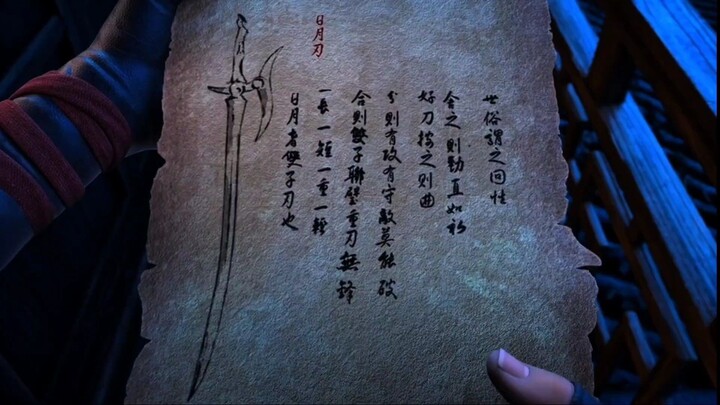 日月刃
日月者雙子刃也
一長一短一重一輕
合則雙子聯璧重刀無鋒
分則有攻有守敵莫能破
好刀按之則曲
舍之則勁直如初
世俗謂之回性